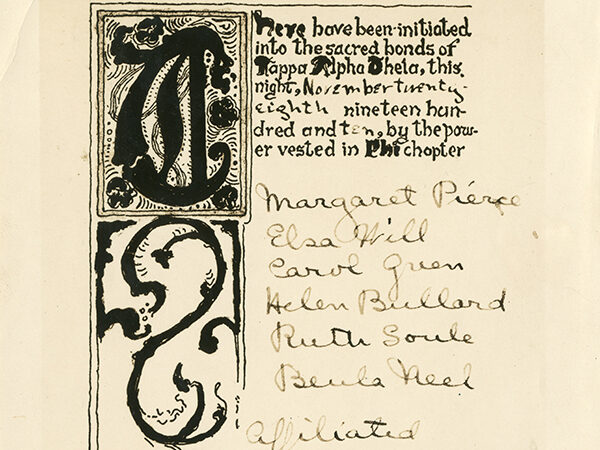 There have been initiated
into the sacred bonds of
Kappa Alpha Theta, this
night, November twenty-
eighth nineteen hun-
dred and ten, by the pow-
er vested in Phi chapter
Margaret Pierce
Elsa Will
Carol Green
Helen Bullard
Ruth Soule
Beula Neel
Affiliated